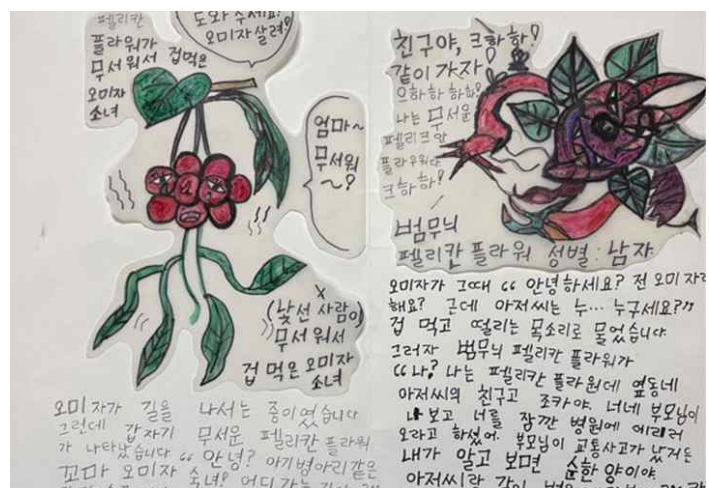 펠리칸
플라워가
무서워서 겁먹은
오미자
소녀
도와 주세요!
오미자살려!
엄마~
무서워
~?
(낯선 사람이)
무서워서
겁 먹은 오미자
소녀
오미자가 길을 나서는 중이였습니다
그런데 갑자기 무서운 펠리칸 플라워
가 나타났습니다 “ 안녕? 아기병아리같은
꼬마 오미자 숙녀? 어디가는
친구야, 크하하!
같이 가자
으하하하하!
나는 무서운
펠리크안
플라워다
크하하!
범무늬
펠리칸플라워 성별 : 남자
오미자가 그때 “ 안녕하세요? 전 오미자라
해요? 근데 아저씨는 누··· 누구세요?”
겁 먹고 떨리는 목소리로 물었습니다
그러자 범무늬 펠리칸 플라워가
“ 나? 나는 펠리칸 플라원데 옆동네
아저씨의 친구고 조카야. 너네 부모님이
나보고 너를 잠깐 병원에 데리러
오라고 하셨어. 부모님이 교통사고가 났거든
내가 알고 보면 순한 양이야.
아저씨랑 같이